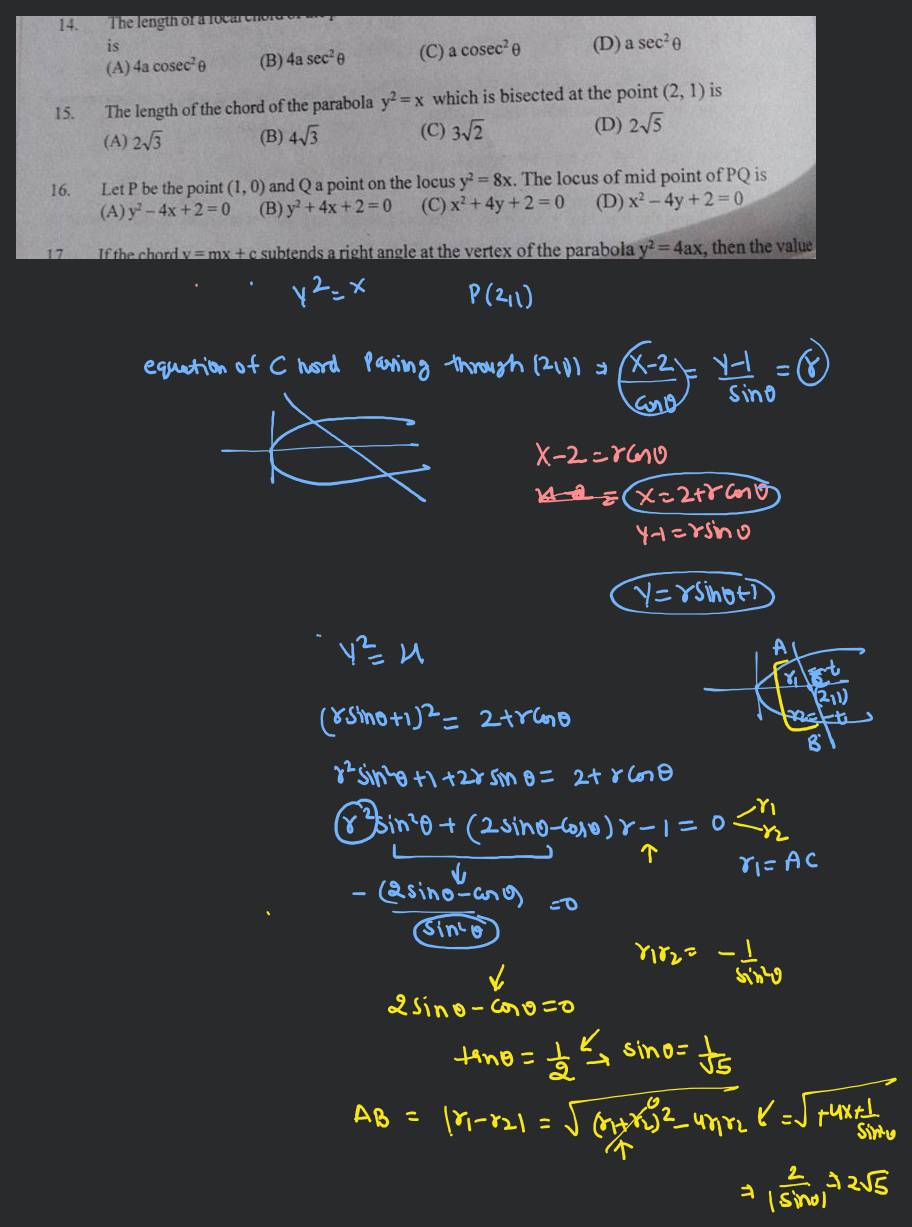 14. The length of a focal chord of the p
is
(A) 4a cosec²θ (B) 4a sec²θ (C) a cosec²θ (D) a sec²θ
15. The length of the chord of the parabola y² = x which is bisected at the point (2, 1) is
(A) 2√3 (B) 4√3 (C) 3√2 (D) 2√5
16. Let P be the point (1, 0) and Q a point on the locus y² = 8x. The locus of mid point of PQ is
(A) y² – 4x + 2 = 0 (B) y² + 4x + 2 = 0 (C) x² + 4y + 2 = 0 (D) x² – 4y + 2 = 0
17 If the chord y = mx + c subtends a right angle at the vertex of the parabola y² = 4ax, then the value
y² = x P(2,1)
equation of Chord Passing through (2,1) ⇒ x-2/cosθ = y-1/sinθ = r
x-2 = rcosθ
= x = 2+rcosθ
y-1 = rsinθ
y = rsinθ+1
y² = x
A
r₁ = t
(2,1)
r₂ = -t
B
(rsinθ+1)² = 2+rcosθ
r²sin²θ+1+2r sinθ = 2+rcosθ
r²sin²θ + (2sinθ-cosθ)r-1 = 0 r₁ r₂
r₁ = AC
-(2sinθ-cosθ)/sin²θ = 0
r₁r₂ = -1/sin²θ
2sinθ-cosθ=0
tanθ = 1/2 → sinθ = 1/√5
AB = |r₁-r₂| = √(r₁+r₂)²-4r₁r₂ = √+4x+1/sin²θ
0
⇒ 2/|sinθ| ⇒ 2√5